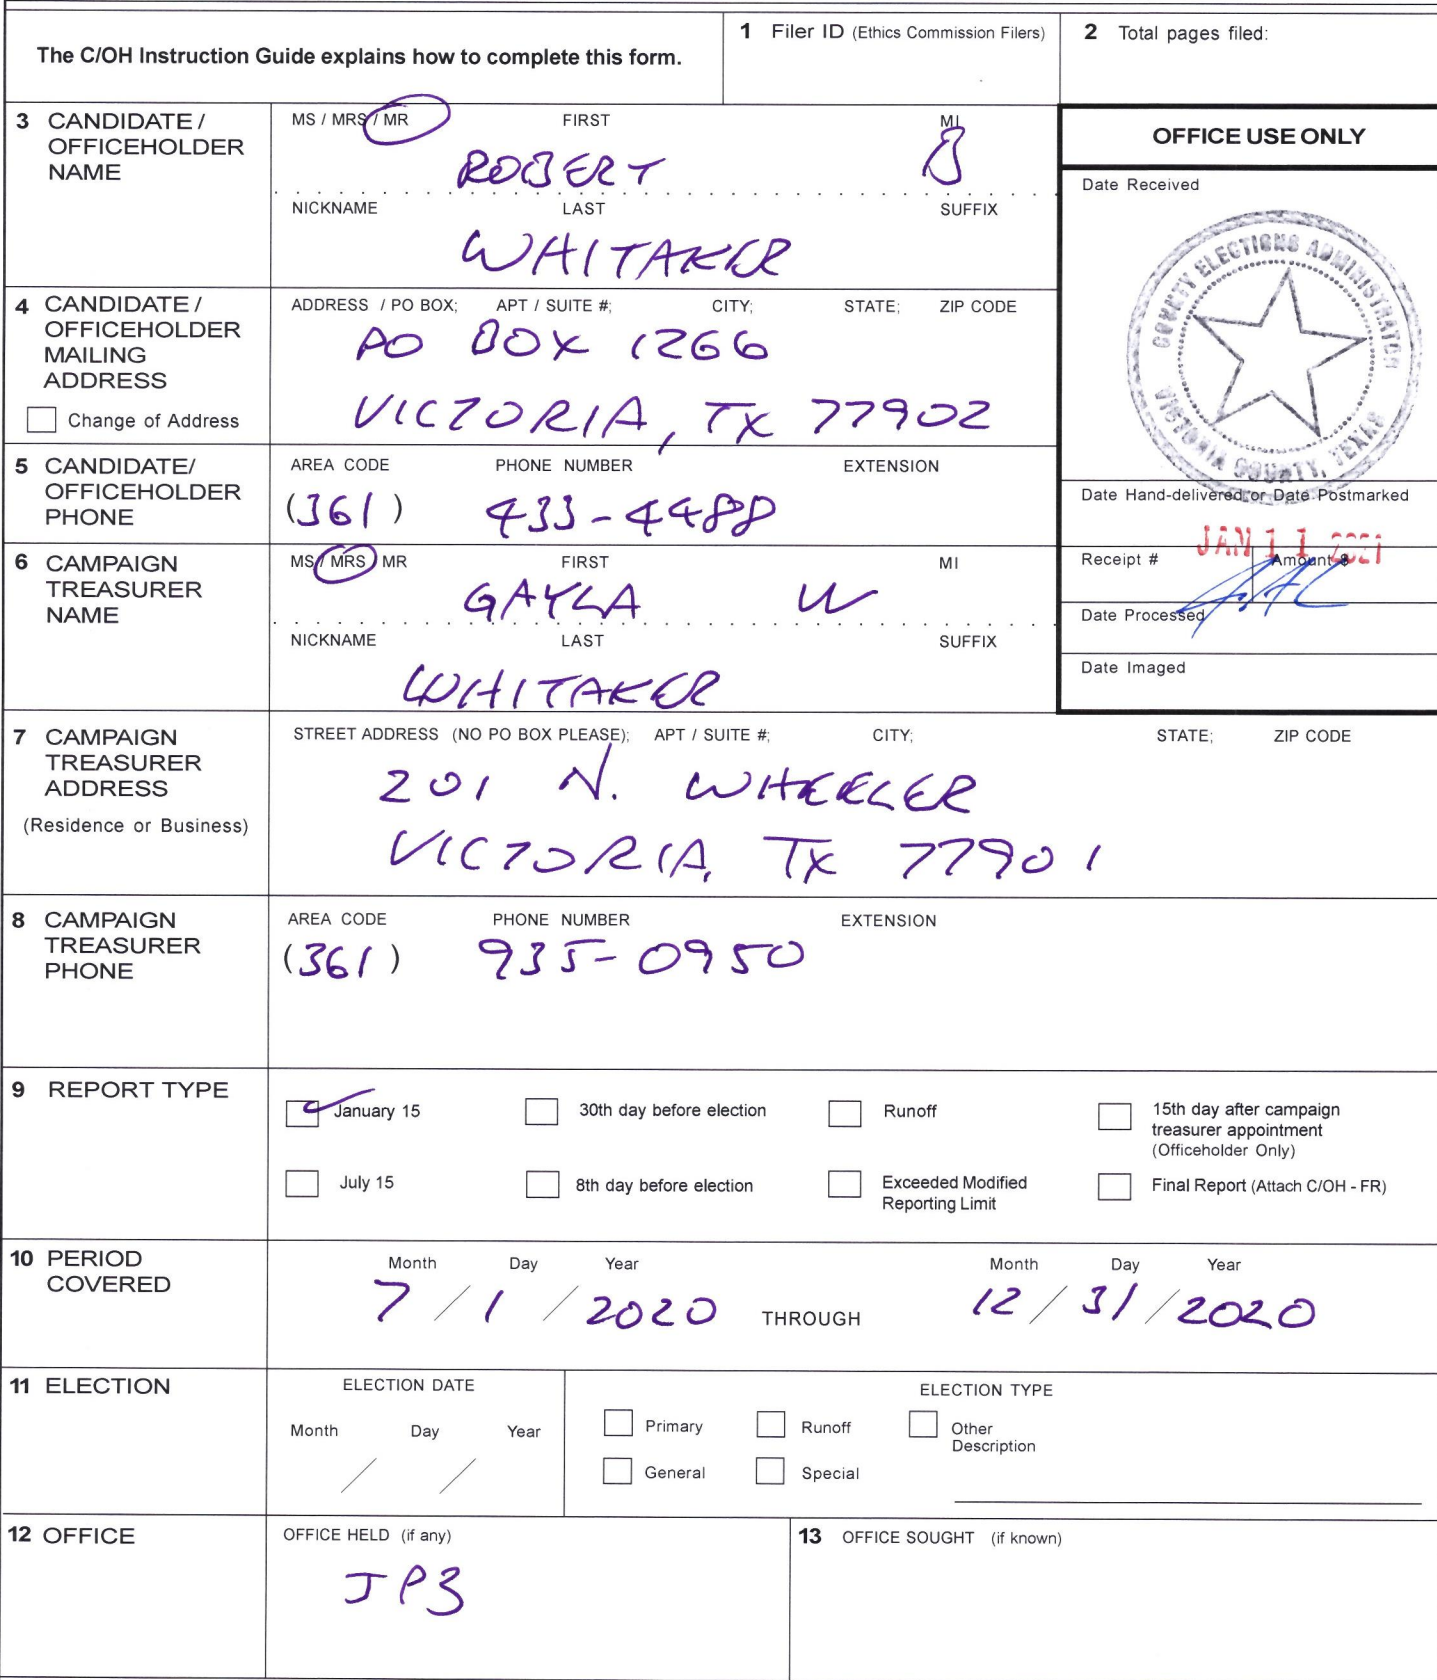 The C/OH Instruction Guide explains how to complete this form.
1 Filer ID (Ethics Commission Filers)
2 Total pages filed:
3 CANDIDATE / OFFICEHOLDER NAME
MS / MRS / MR FIRST MI
ROBERT B
NICKNAME LAST SUFFIX
WHITAKER
OFFICE USE ONLY
Date Received
COUNTY ELECTIONS ADMINISTRATOR
VICTORIA COUNTY, TEXAS
Date Hand-delivered or Date Postmarked
JAN 11 2021
Receipt # Amount $
Date Processed
Date Imaged
4 CANDIDATE / OFFICEHOLDER MAILING ADDRESS
Change of Address
ADDRESS / PO BOX; APT / SUITE #; CITY; STATE; ZIP CODE
PO BOX 1266
VICTORIA, TX 77902
5 CANDIDATE/ OFFICEHOLDER PHONE
AREA CODE PHONE NUMBER EXTENSION
(361) 433-4488
6 CAMPAIGN TREASURER NAME
MS / MRS / MR FIRST MI
GAYLA W
NICKNAME LAST SUFFIX
WHITAKER
7 CAMPAIGN TREASURER ADDRESS
(Residence or Business)
STREET ADDRESS (NO PO BOX PLEASE); APT / SUITE #; CITY; STATE; ZIP CODE
201 N. WHEELER
VICTORIA, TX 77901
8 CAMPAIGN TREASURER PHONE
AREA CODE PHONE NUMBER EXTENSION
(361) 935-0950
9 REPORT TYPE
January 15 30th day before election Runoff 15th day after campaign treasurer appointment (Officeholder Only)
July 15 8th day before election Exceeded Modified Reporting Limit Final Report (Attach C/OH - FR)
10 PERIOD COVERED
Month Day Year Month Day Year
7 / 1 / 2020 THROUGH 12 / 31 / 2020
11 ELECTION
ELECTION DATE
Month Day Year
/ /
ELECTION TYPE
Primary Runoff Other Description
General Special
12 OFFICE
OFFICE HELD (if any)
JP3
13 OFFICE SOUGHT (if known)